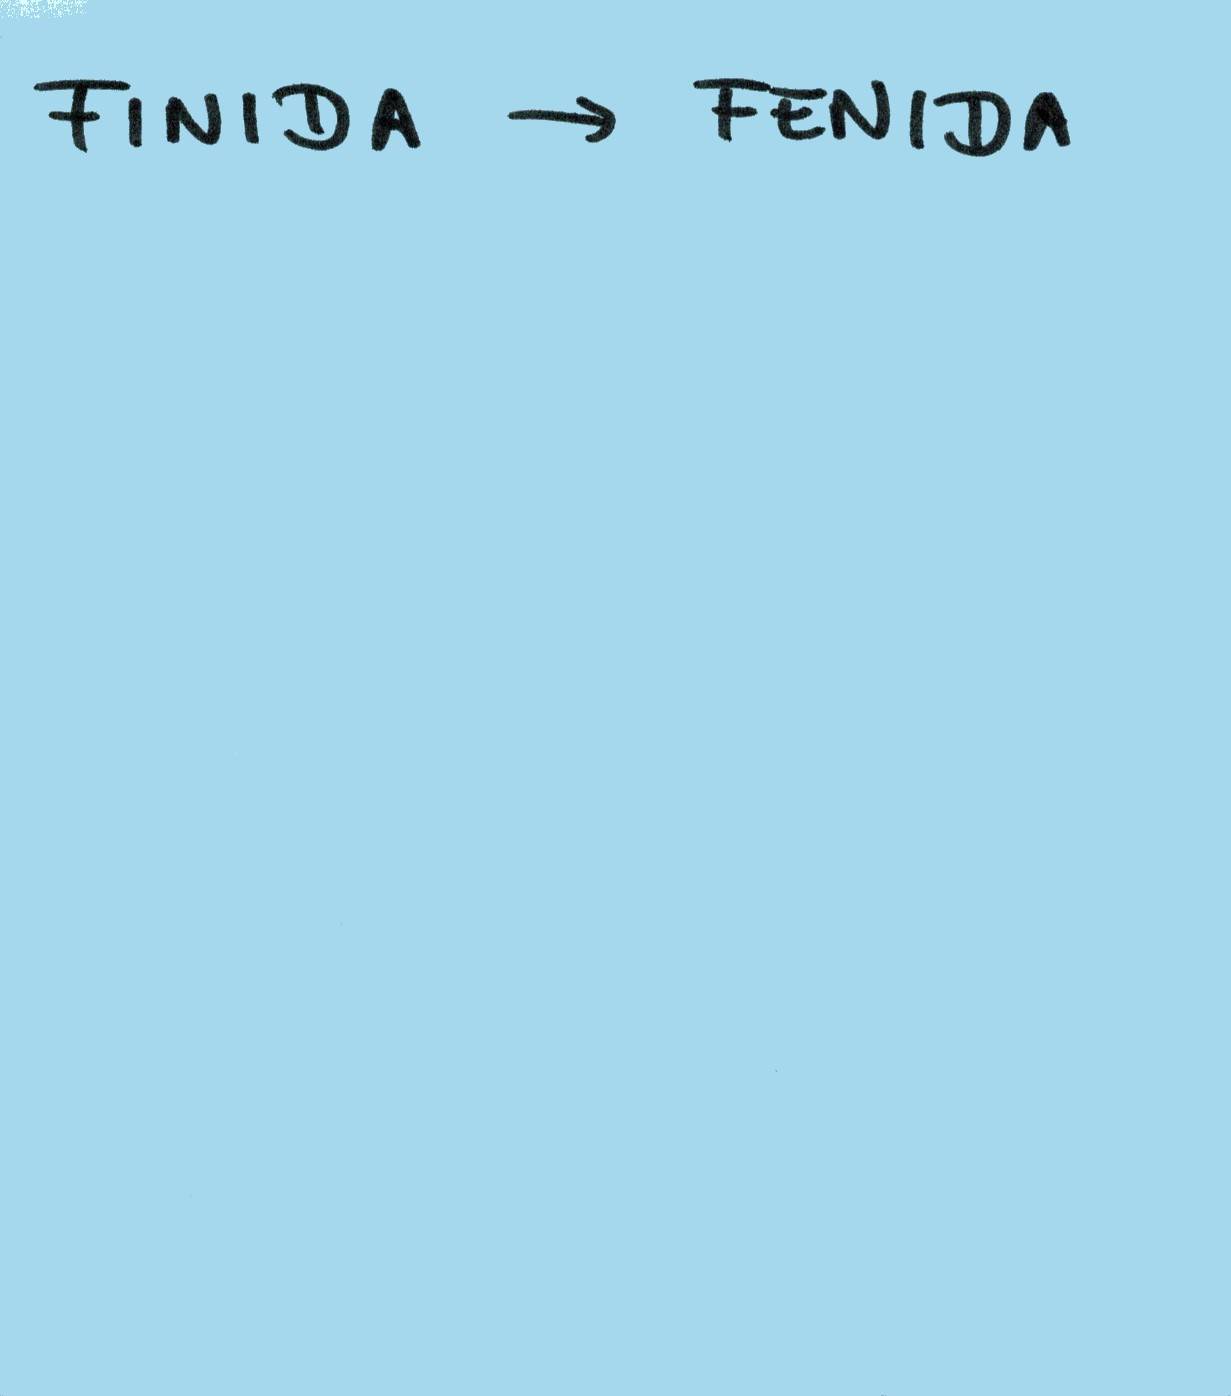 FINIDA → FENIDA